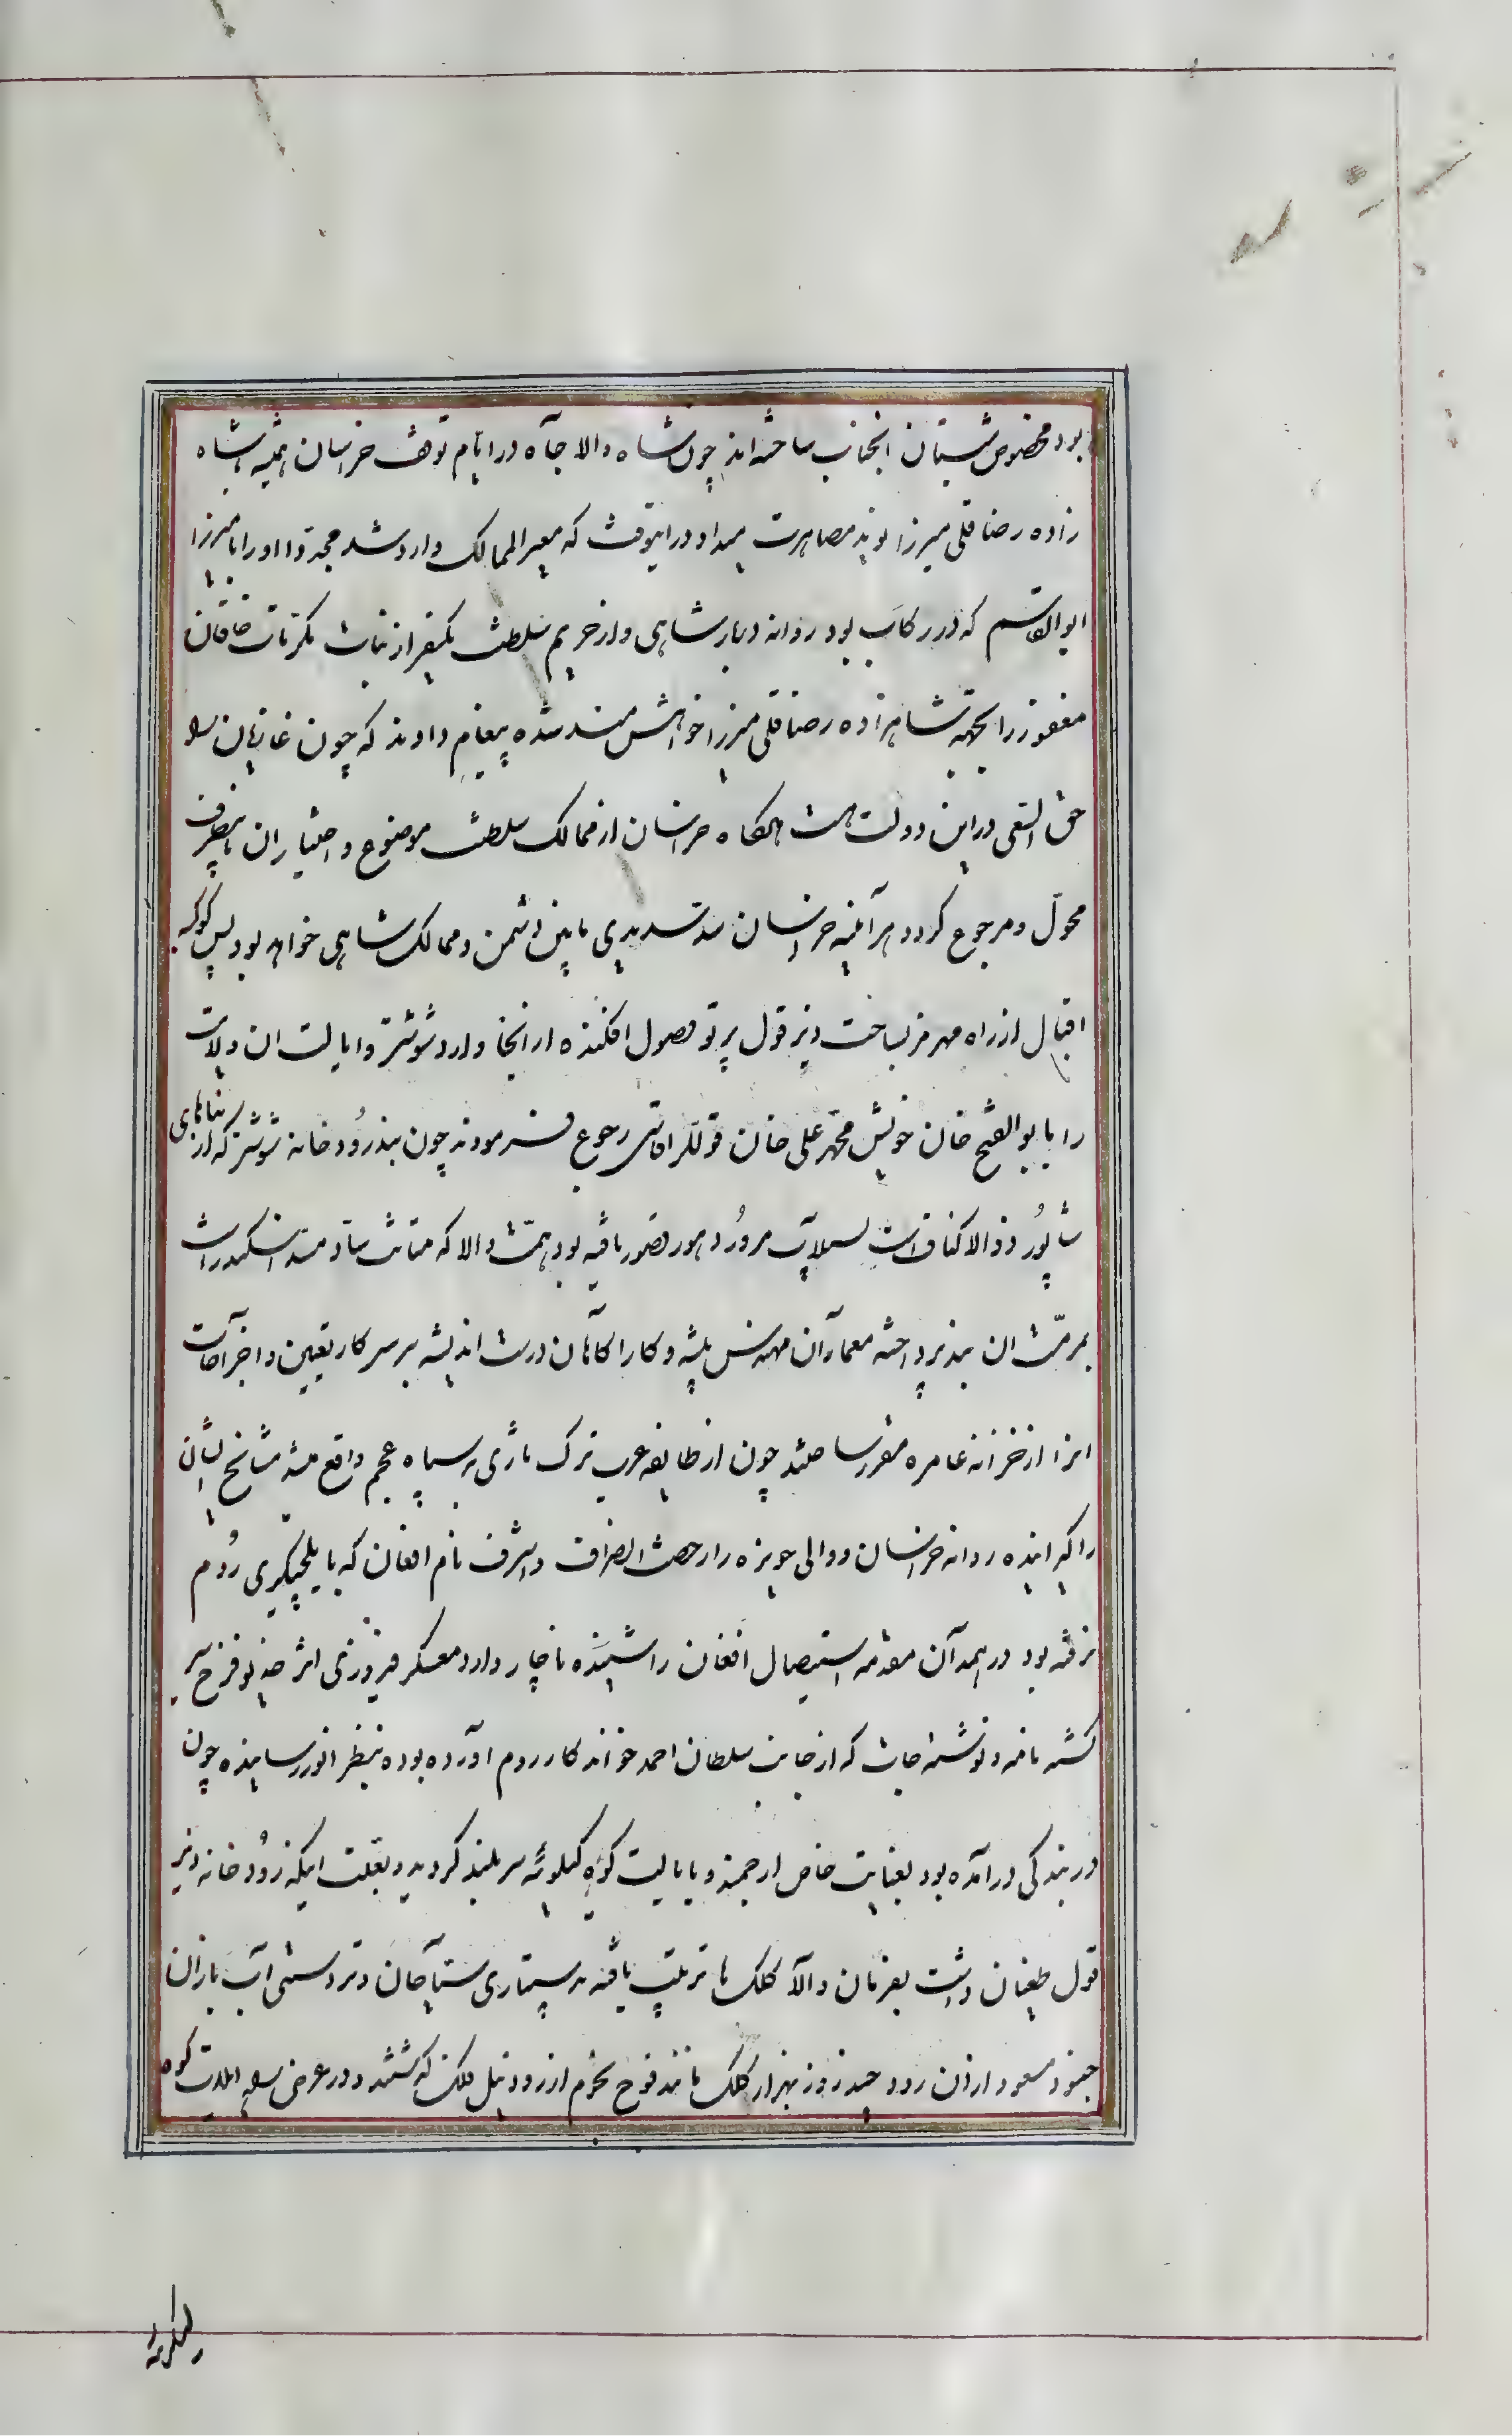 بود مخصوص شبستان انجناب ساخته‌اند چون شاه والا جاه در ایام توقف خراسان همیشه شاه
زاده رضا قلی میرزا نوید مصاهرت میداد در اینوقت که معیر الممالک وارد شد مجددا او را با میرزا
ابوالقاسم که در رکاب بود روانه دربار شاهی و از حریم سلطنت یکنفر از بنات مکرمات خاقان
مغفور را بجهة شاهزاده رضا قلی میرزا خواهش مند شده پیغام دادند که چون غازیان را
حق السعی در این دولت هست هرگاه خراسان از ممالک سلطنت موضوع و اختیار ان باینطرف
محول و مرجوع کردد هر آینه خراسان سد سدیدی مابین دشمن و ممالک شاهی خواهد بود پس کوکبه
اقبال از راه مهرمز بساحت دیز قول پرتو وصول افکنده از انجا وارد شوشتر و ایالت ان ولایت
را با بوالفتح خان خویش محمد علی خان قوللر اقاسی رجوع فرمودند چون بند رود خانه شوشتر که از بناهای
شاپور ذوالاکتاف است بسیلاب مرور دهور قصور یافته بود همت والا که متانت ساز سد اسکندر است
بمرمت ان بند پرداخته معماران مهندس پیشه و کار اکاهان درست اندیشه بر سر کار تعیین و اخراجات
انرا از خزانه عامره مقرر ساختند چون از طایفه عرب ترک تازی به سپاه عجم واقع شد مشایخ ایشان
را کوچانیده روانه خراسان و والی حویزه را رخصت انصراف و اشرف نام افغان که بایلچیکری روم
رفته بود در همدان مقدمه استیصال افغان را شنیده ناچار وارد معسکر فیروزی اثر خدیو فرخ سیر
کشته نامه و نوشتجات که از جانب سلطان احمد خواندکار روم آورده بوده بنظر انور رسانیده چون
در بندکی درآمده بود بعنایت خاص ارجمند و بایالت کوه کیلویه سر بلند کردید و بعلت اینکه رود خانه دیز
قول طغیان داشت بفرمان والا کلک ها ترتیب یافته به دستیاری سباحان و تردستی آب بازان
جنود مسعود از ان رود چند روز بهزار کلک مانند فوج نجوم از رود نیل فلک گذشتند و در عرض راه ایالت کوه